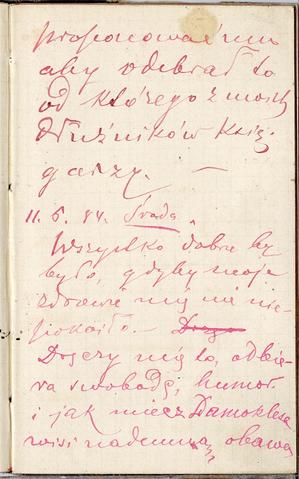 proponować mu
aby odebrał to
od którego z moich
dłużników Księ-
garzy. —
11. 6. 84. Środa.
Wszystko dobre by
było, gdyby moje
zdrowie mię nie nie-
pokoiło. —
Dręczy mię to, odbie-
ra swobodę, humor
i jak miecz Damoklesa
wisi nademną obawa